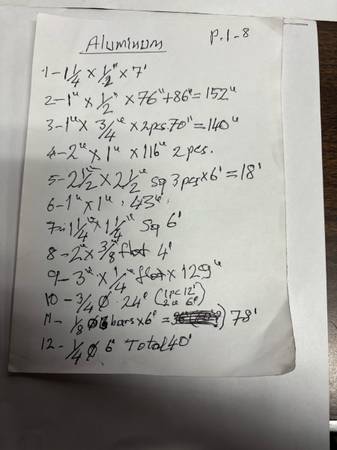 Aluminum P.1-8
1-1 1/4 x 1/2" x 7'
2-1" x 1/2" x 76"+86"=152"
3-1" x 3/4" x 2pcs.70"=140"
4-2" x 1" x 116" 2 pcs.
5-2 1/2" x 2 1/2" Sq 3 pcs x 6'=18'
6-1" x 1", 43"
7-1 1/4" x 1 1/4" Sq 6'
8-2" x 3/8 flat 4'
9-3" x 1/4" flat x 129"
10-3/4 Ø 24' (1 pc 12' 6')
11-1/8 Ø bars x 6' = 78'
12-1/4 Ø 6' Total 40'